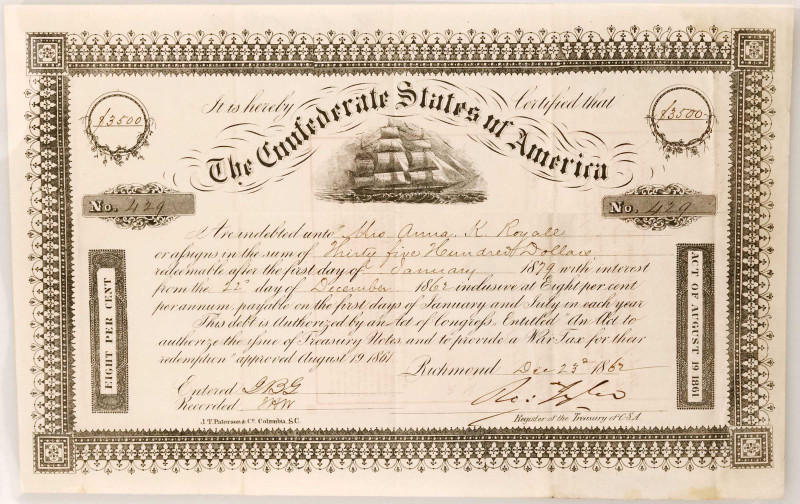 It is hereby Certified that
$3500 $3500
The Confederate States of America
No. 429 No. 429
Are indebted unto Mrs Anna K Royall
or assigns in the sum of Thirty five Hundred Dollars
redeemable after the first day of January 1879 with interest
from the 22d day of December 1862 inclusive at Eight per cent
per annum, payable on the first days of January and July in each year
This debt is Authorized by an Act of Congress Entitled "An Act to
authorize the issue of Treasury Notes and to provide a War Tax for their
redemption" approved August 19 1861.
Richmond Dec 23d 1862
Entered JBG
Recorded
Ro: Tyler
Register of the Treasury of C.S.A.
J. T. Paterson & Co. Columbia, S.C.
EIGHT PER CENT
ACT OF AUGUST 19 1861